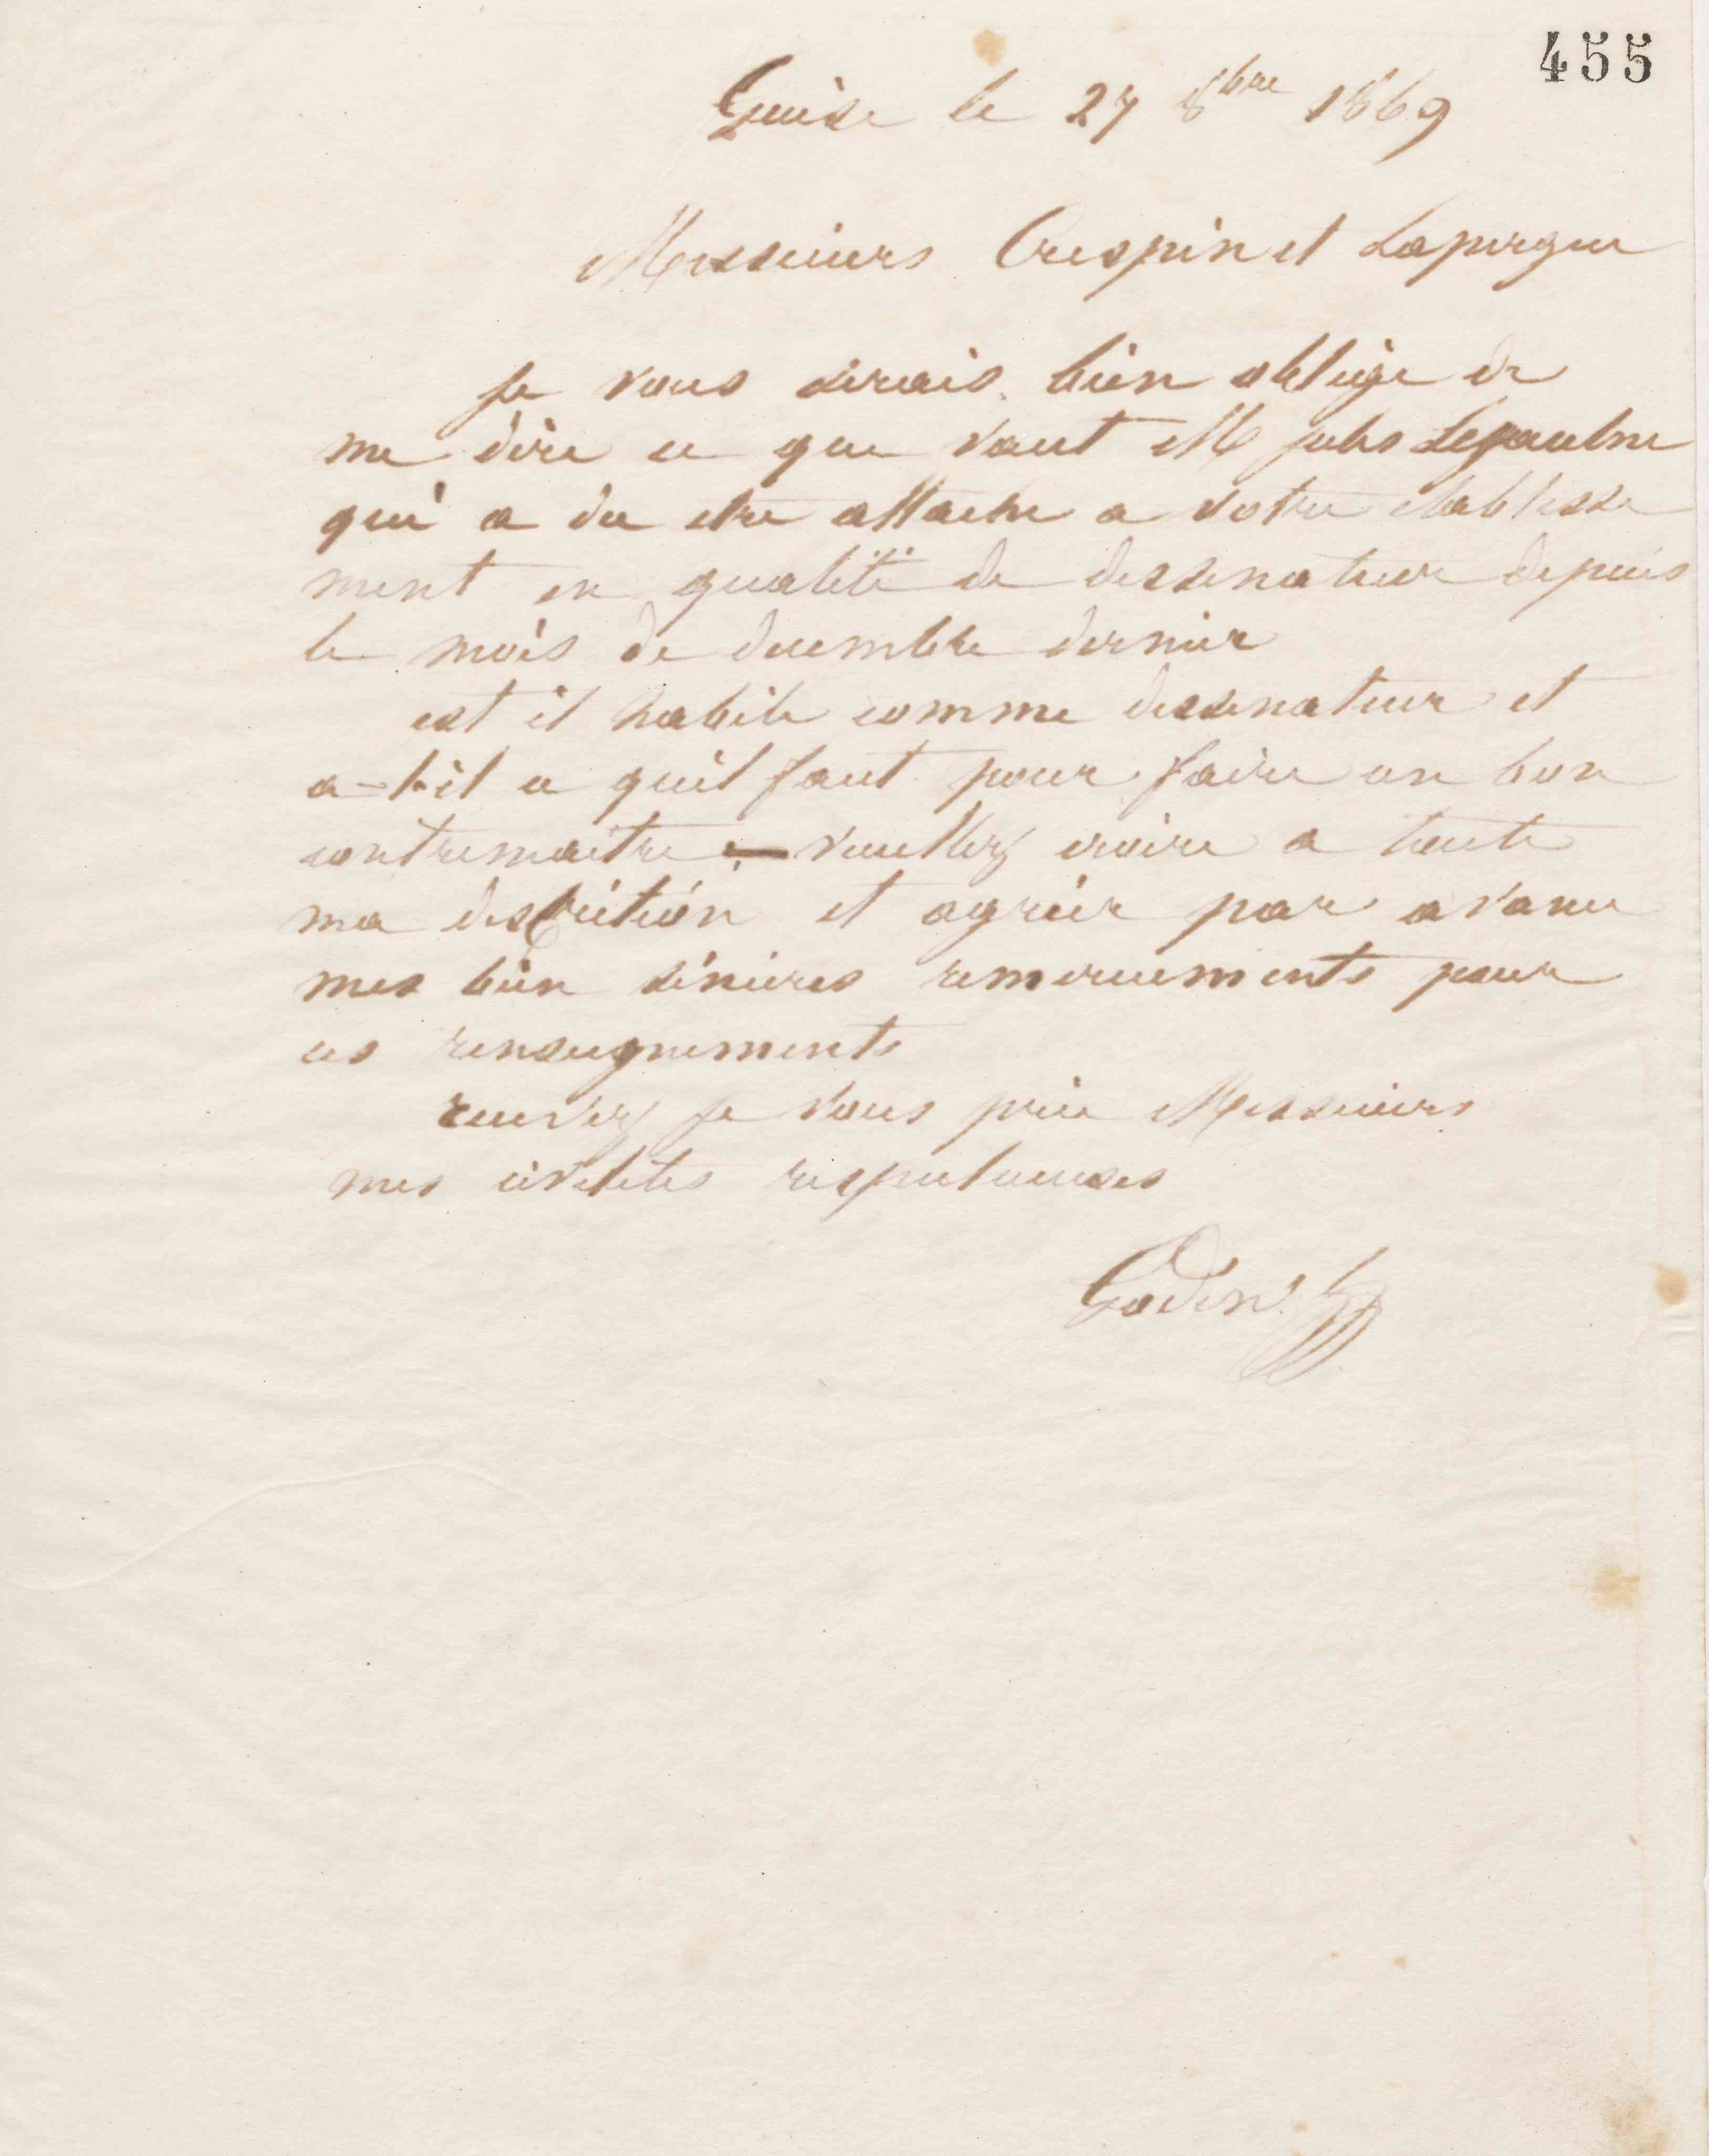 455
Guise le 27 8bre 1869
Messieurs Crespin et Lapergue
Je vous serais bien oblige de
me dire ce que vaut M Jules Lepaulme
qui a du etre attache a votre etablisse
ment en qualité de dessinateur depuis
le mois de decembre dernier
est il habile comme dessinateur et
a-t-il ce quil faut pour faire un bon
contremaitre veuillez croire a toute
ma discrition et agréer par avance
mes bien sinceres remerciements pour
ces renseignements
recevez je vous prie Messieurs
mes civilites respectueuses
Godin